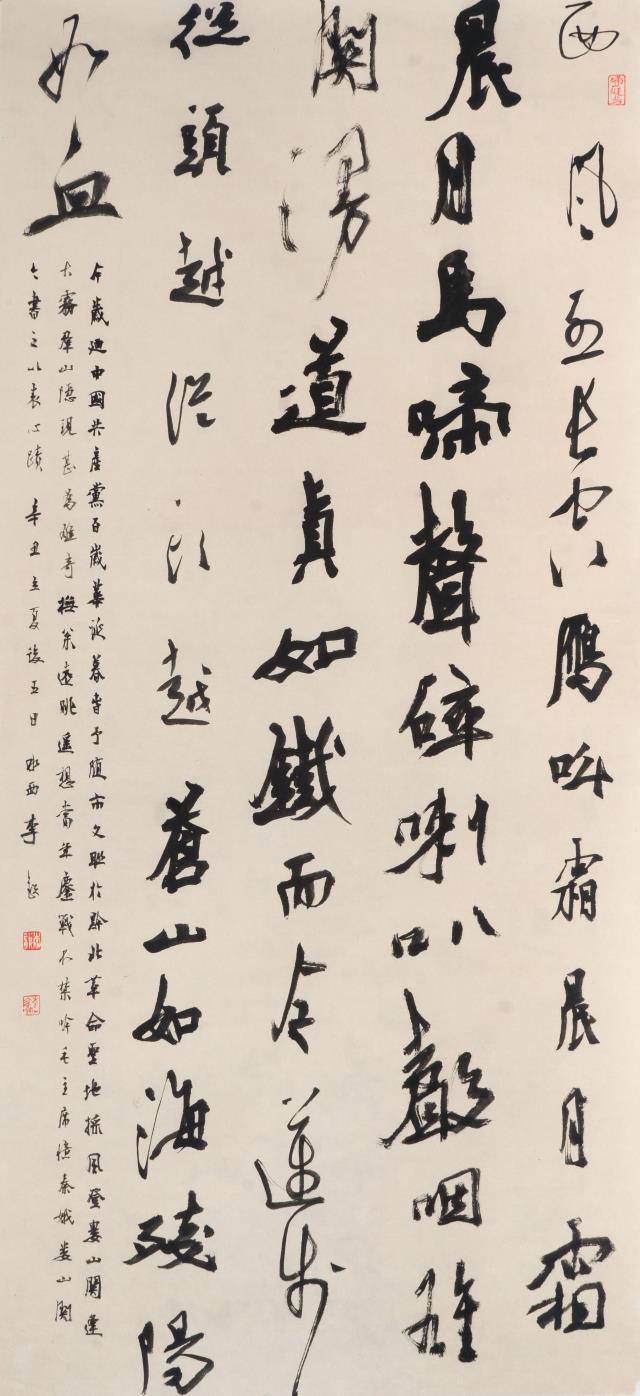 西風烈長空鴈叫霜晨月霜
晨月馬啼聲碎喇叭聲咽雄
關漫道真如鐵而今邁步
從頭越從頭越蒼山如海殘陽
如血
今歲迎中國共產黨百歲華誕暮春予隨市文聯於黔北革命聖地採風登婁山關
大霧群山隱現甚為雄奇撫遠眺遥想當年鏖戰不禁吟毛主席憶秦娥婁山關
今書之以表心蹟 辛丑立夏後五日 水西李